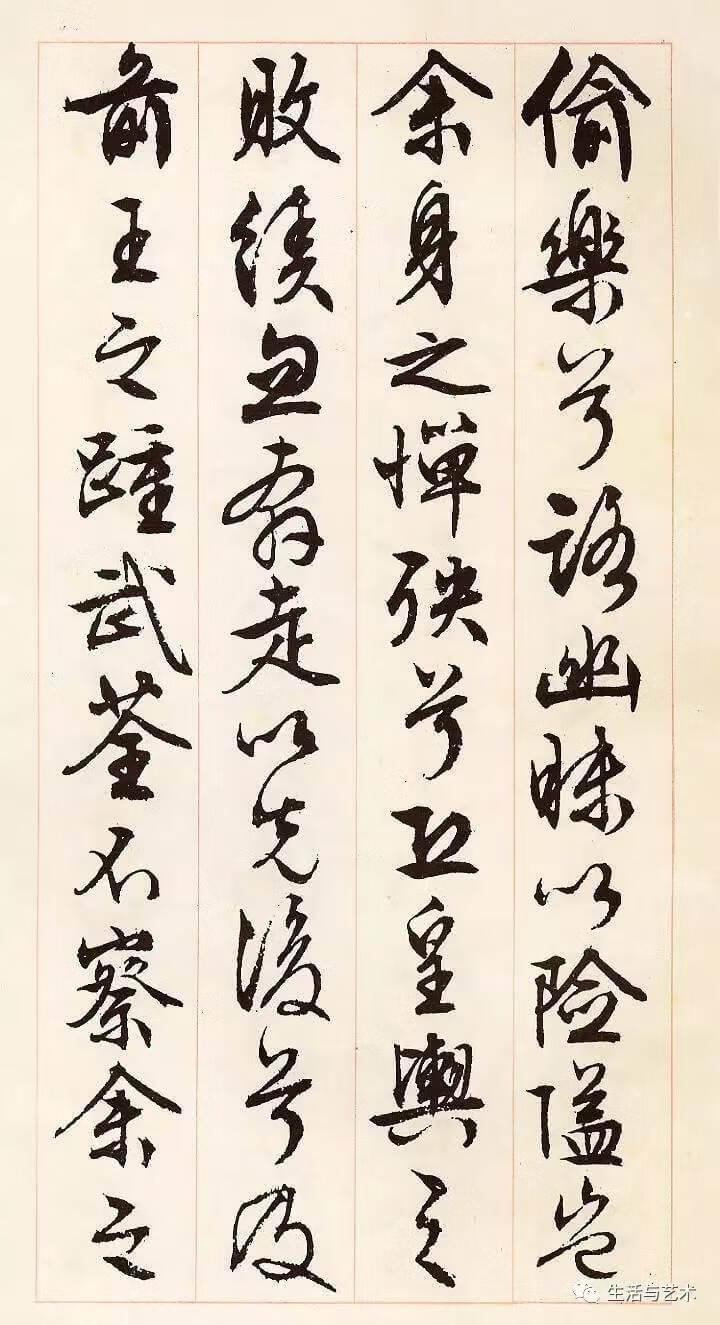 偷樂兮路幽昧以險隘豈
余身之憚殃兮恐皇輿之
敗績忽奔走以先後兮及
前王之踵武荃不察余之
生活与艺术